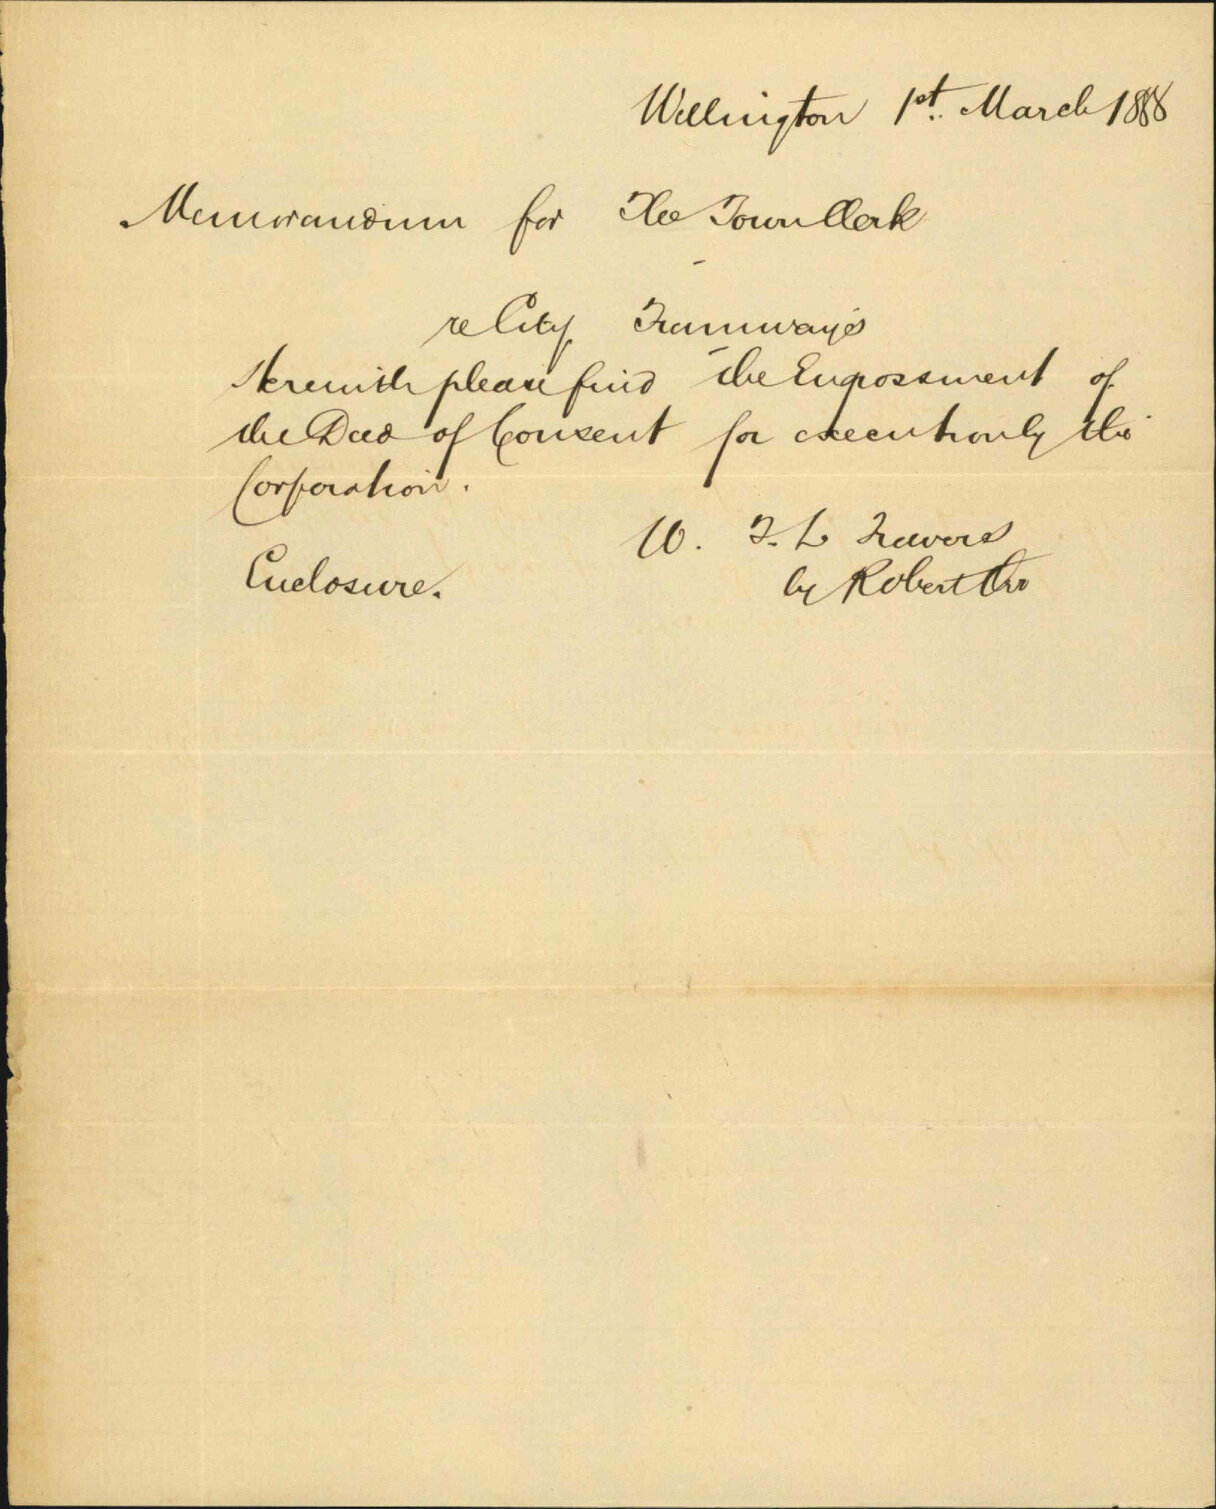 Wellington 1st. March 1888
Memorandum for The Town Clerk
re City Tramways
Herewith please find the Engrossment of
the Deed of Consent for execution by the
Corporation.
W. T. L Travers
by Robert Orr
Enclosure.